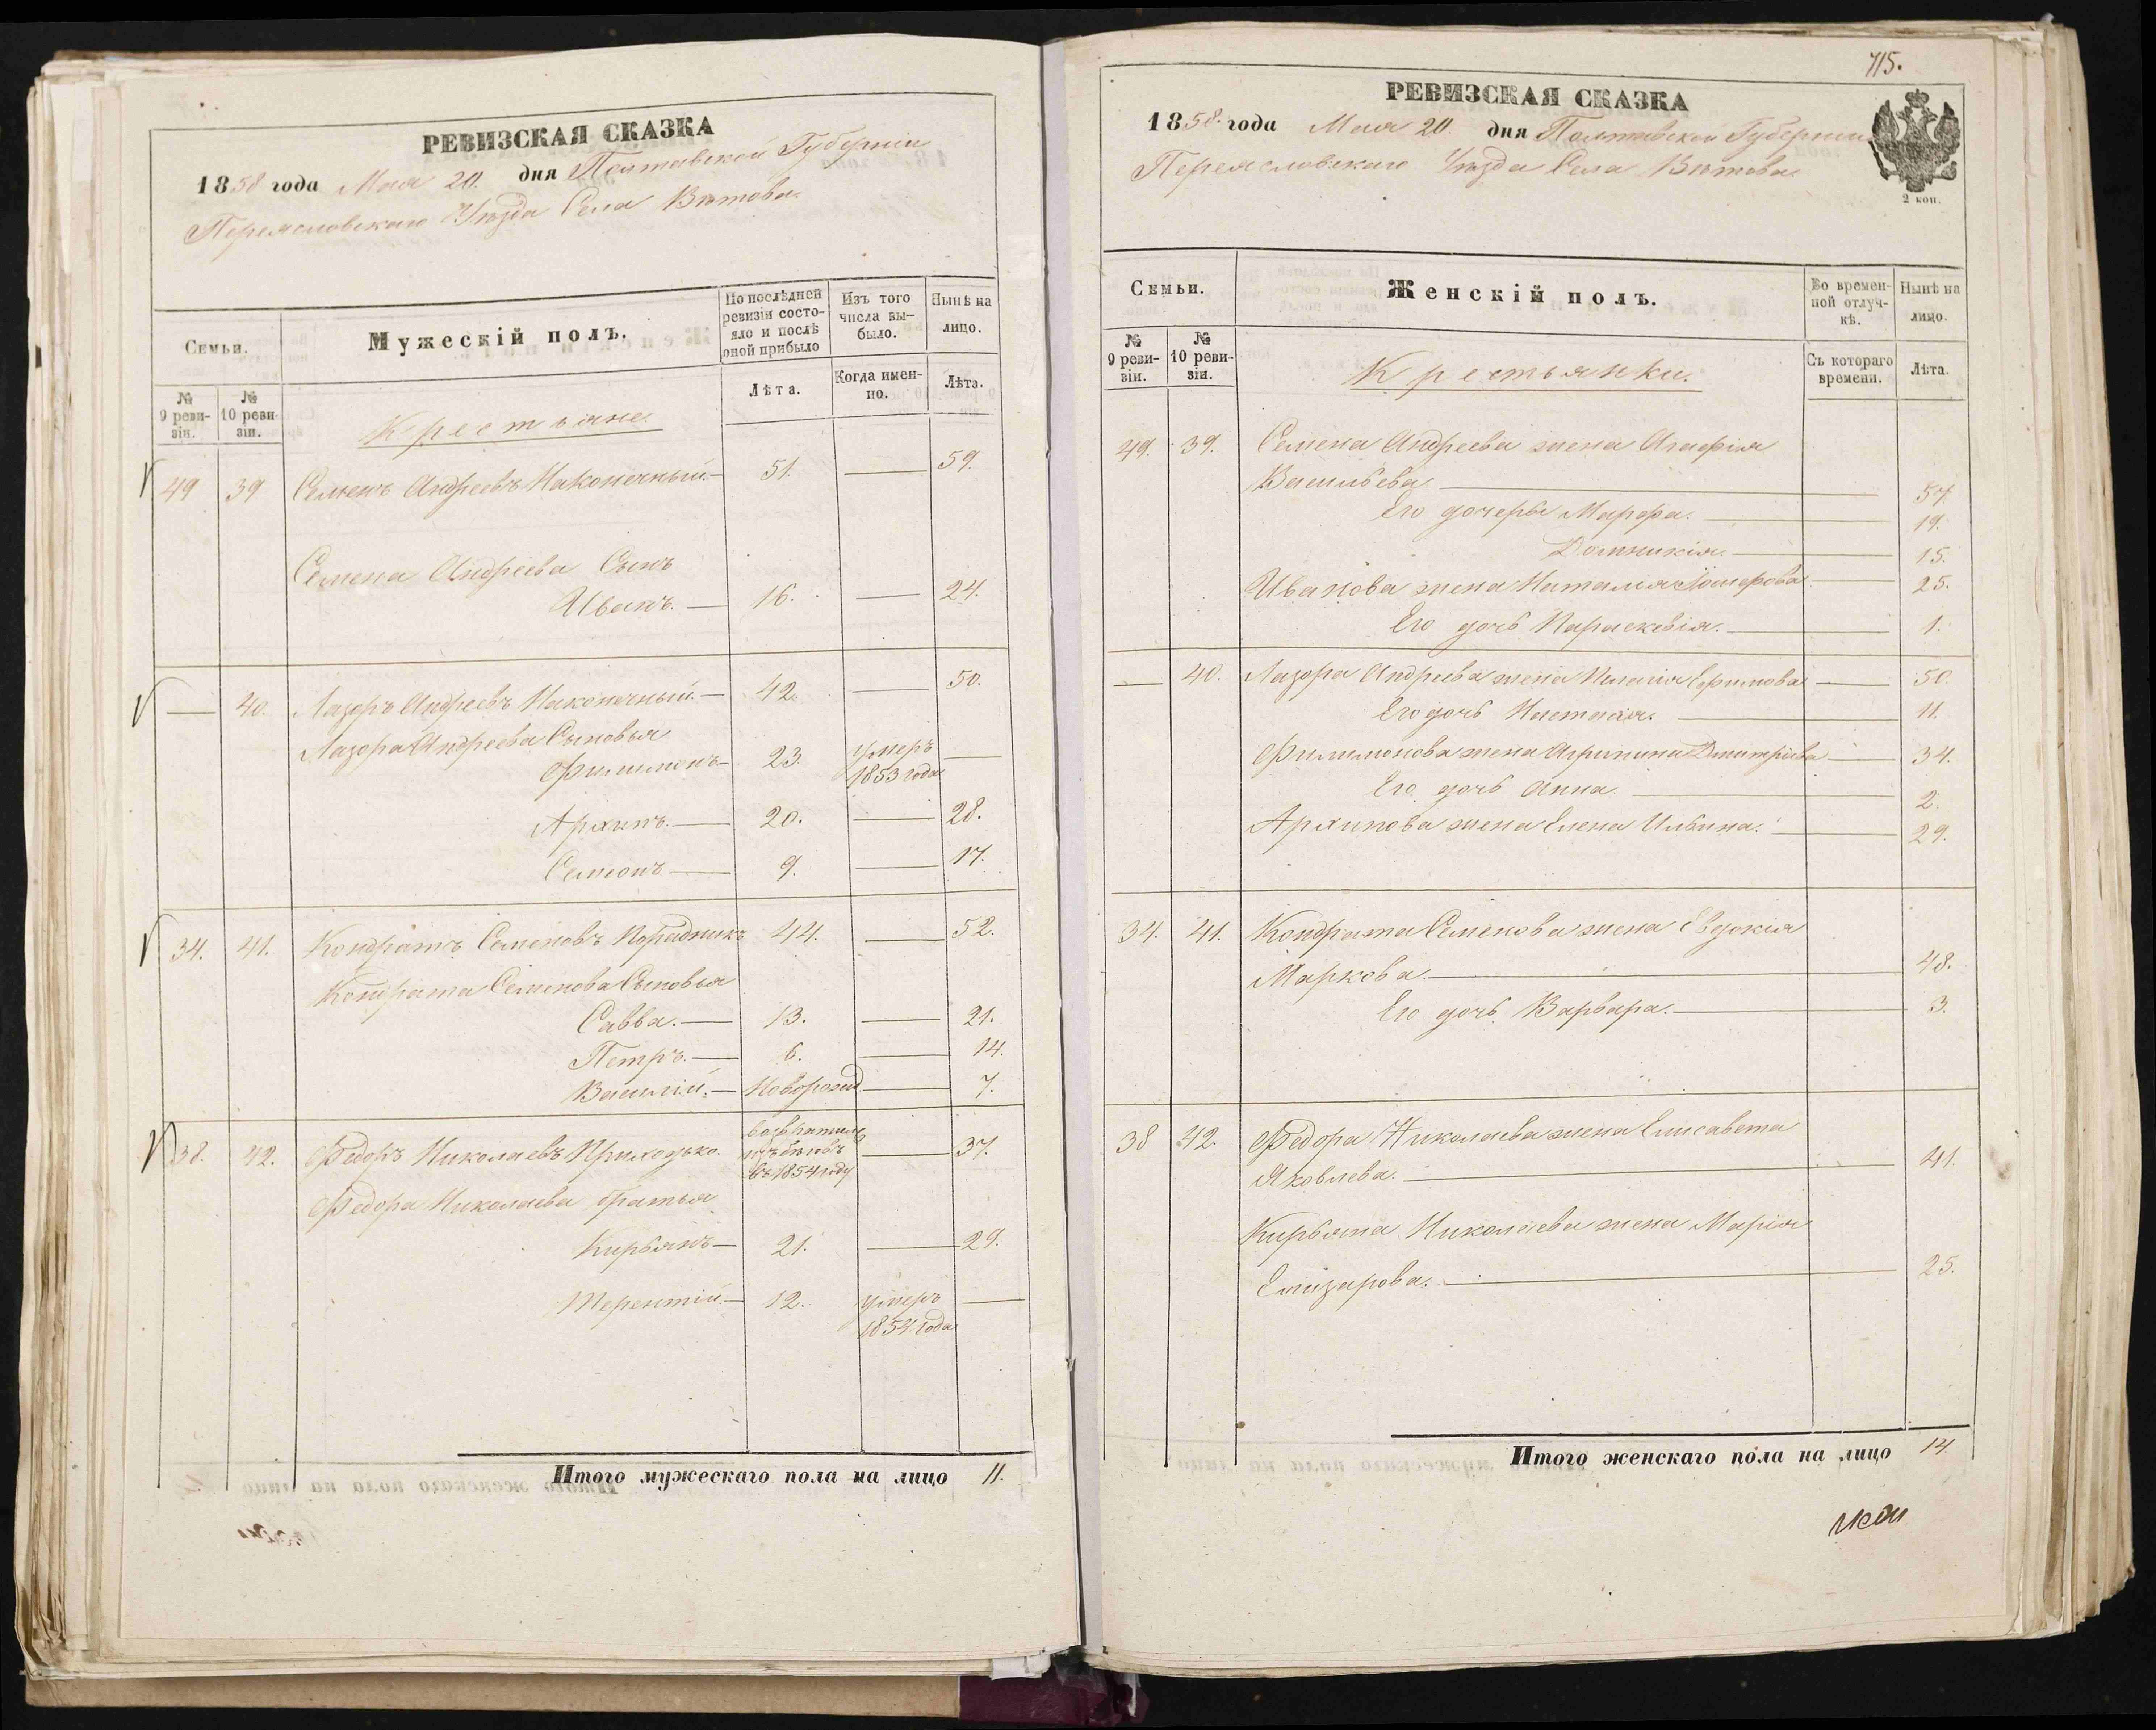 РЕВИЗСКАЯ СКАЗКА
1858 года Мая 20. дня Полтавской Губерніи
Переясловскаго Уѣзда Села Вѣтова.
Семьи.
Мужескій полъ.
По послѣдней ревизіи состояло и послѣ оной прибыло
Изъ того числа выбыло.
Нынѣ на лицо.
№ 9 ревизіи.
№ 10 ревизіи.
Крестьяне.
Лѣта.
Когда именно.
Лѣта.
49 39 Семенъ Андреевъ Наконечный. — 51. — 59.
Семена Андреева Сынъ
Иванъ. — 16. — 24.
— 40. Лазоръ Андреевъ Наконечный. — 42. — 50.
Лазора Андреева Сыновья
Филимонъ — 23. умеръ 1853 года —
Архипъ. — 20. — 28.
Семионъ — 9. — 17.
34. 41. Кондратъ Семеновъ 44. — 52.
Кондрата Семенова Сыновья
Савва. — 13. — 21.
Петръ. — 6. — 14.
Василій. — Новорожд — 7.
38. 42. Федоръ Николаевъ Приходько. возвратил. изъ бѣговъ въ 1854 году — 37.
Федора Николаева братья
Кирьянъ — 21. — 29.
Терентій — 12. умеръ 1854 года —
Итого мужескаго пола на лицо 11.
715.
РЕВИЗСКАЯ СКАЗКА
1858. года Мая 20. дня Полтавской Губерніи
Переясловскаго Уѣзда Села Вѣтова.
2 коп.
Семьи.
Женскій полъ.
Во временной отлучкѣ.
Нынѣ на лицо.
№ 9 ревизіи.
№ 10 ревизіи.
Крестьянки.
Съ котораго времени.
Лѣта.
49. 39. Семена Андреева жена Агафія
Васильева — 57.
Его дочери Марфа. — 19.
Домникія. — 15.
Иванова жена Наталія — 25.
Его дочь Параскевія. — 1.
— 40. Лазора Андреева жена Пелагія Ефимова — 50.
Его дочь Настасія. — 11.
Филимонова жена Агрипина Дмитріева — 34.
Его дочь Анна. — 2.
Архипова жена Елена Ильина. — 29.
34. 41. Кондрата Семенова жена Евдокія
Маркова. — 48.
Его дочь Варвара. — 3.
38 42. Федора Николаева жена Елисавета
Яковлева. — 41.
Кирьяна Николаева жена Марія
Елизарова. — 25.
Итого женскаго пола на лицо 14.